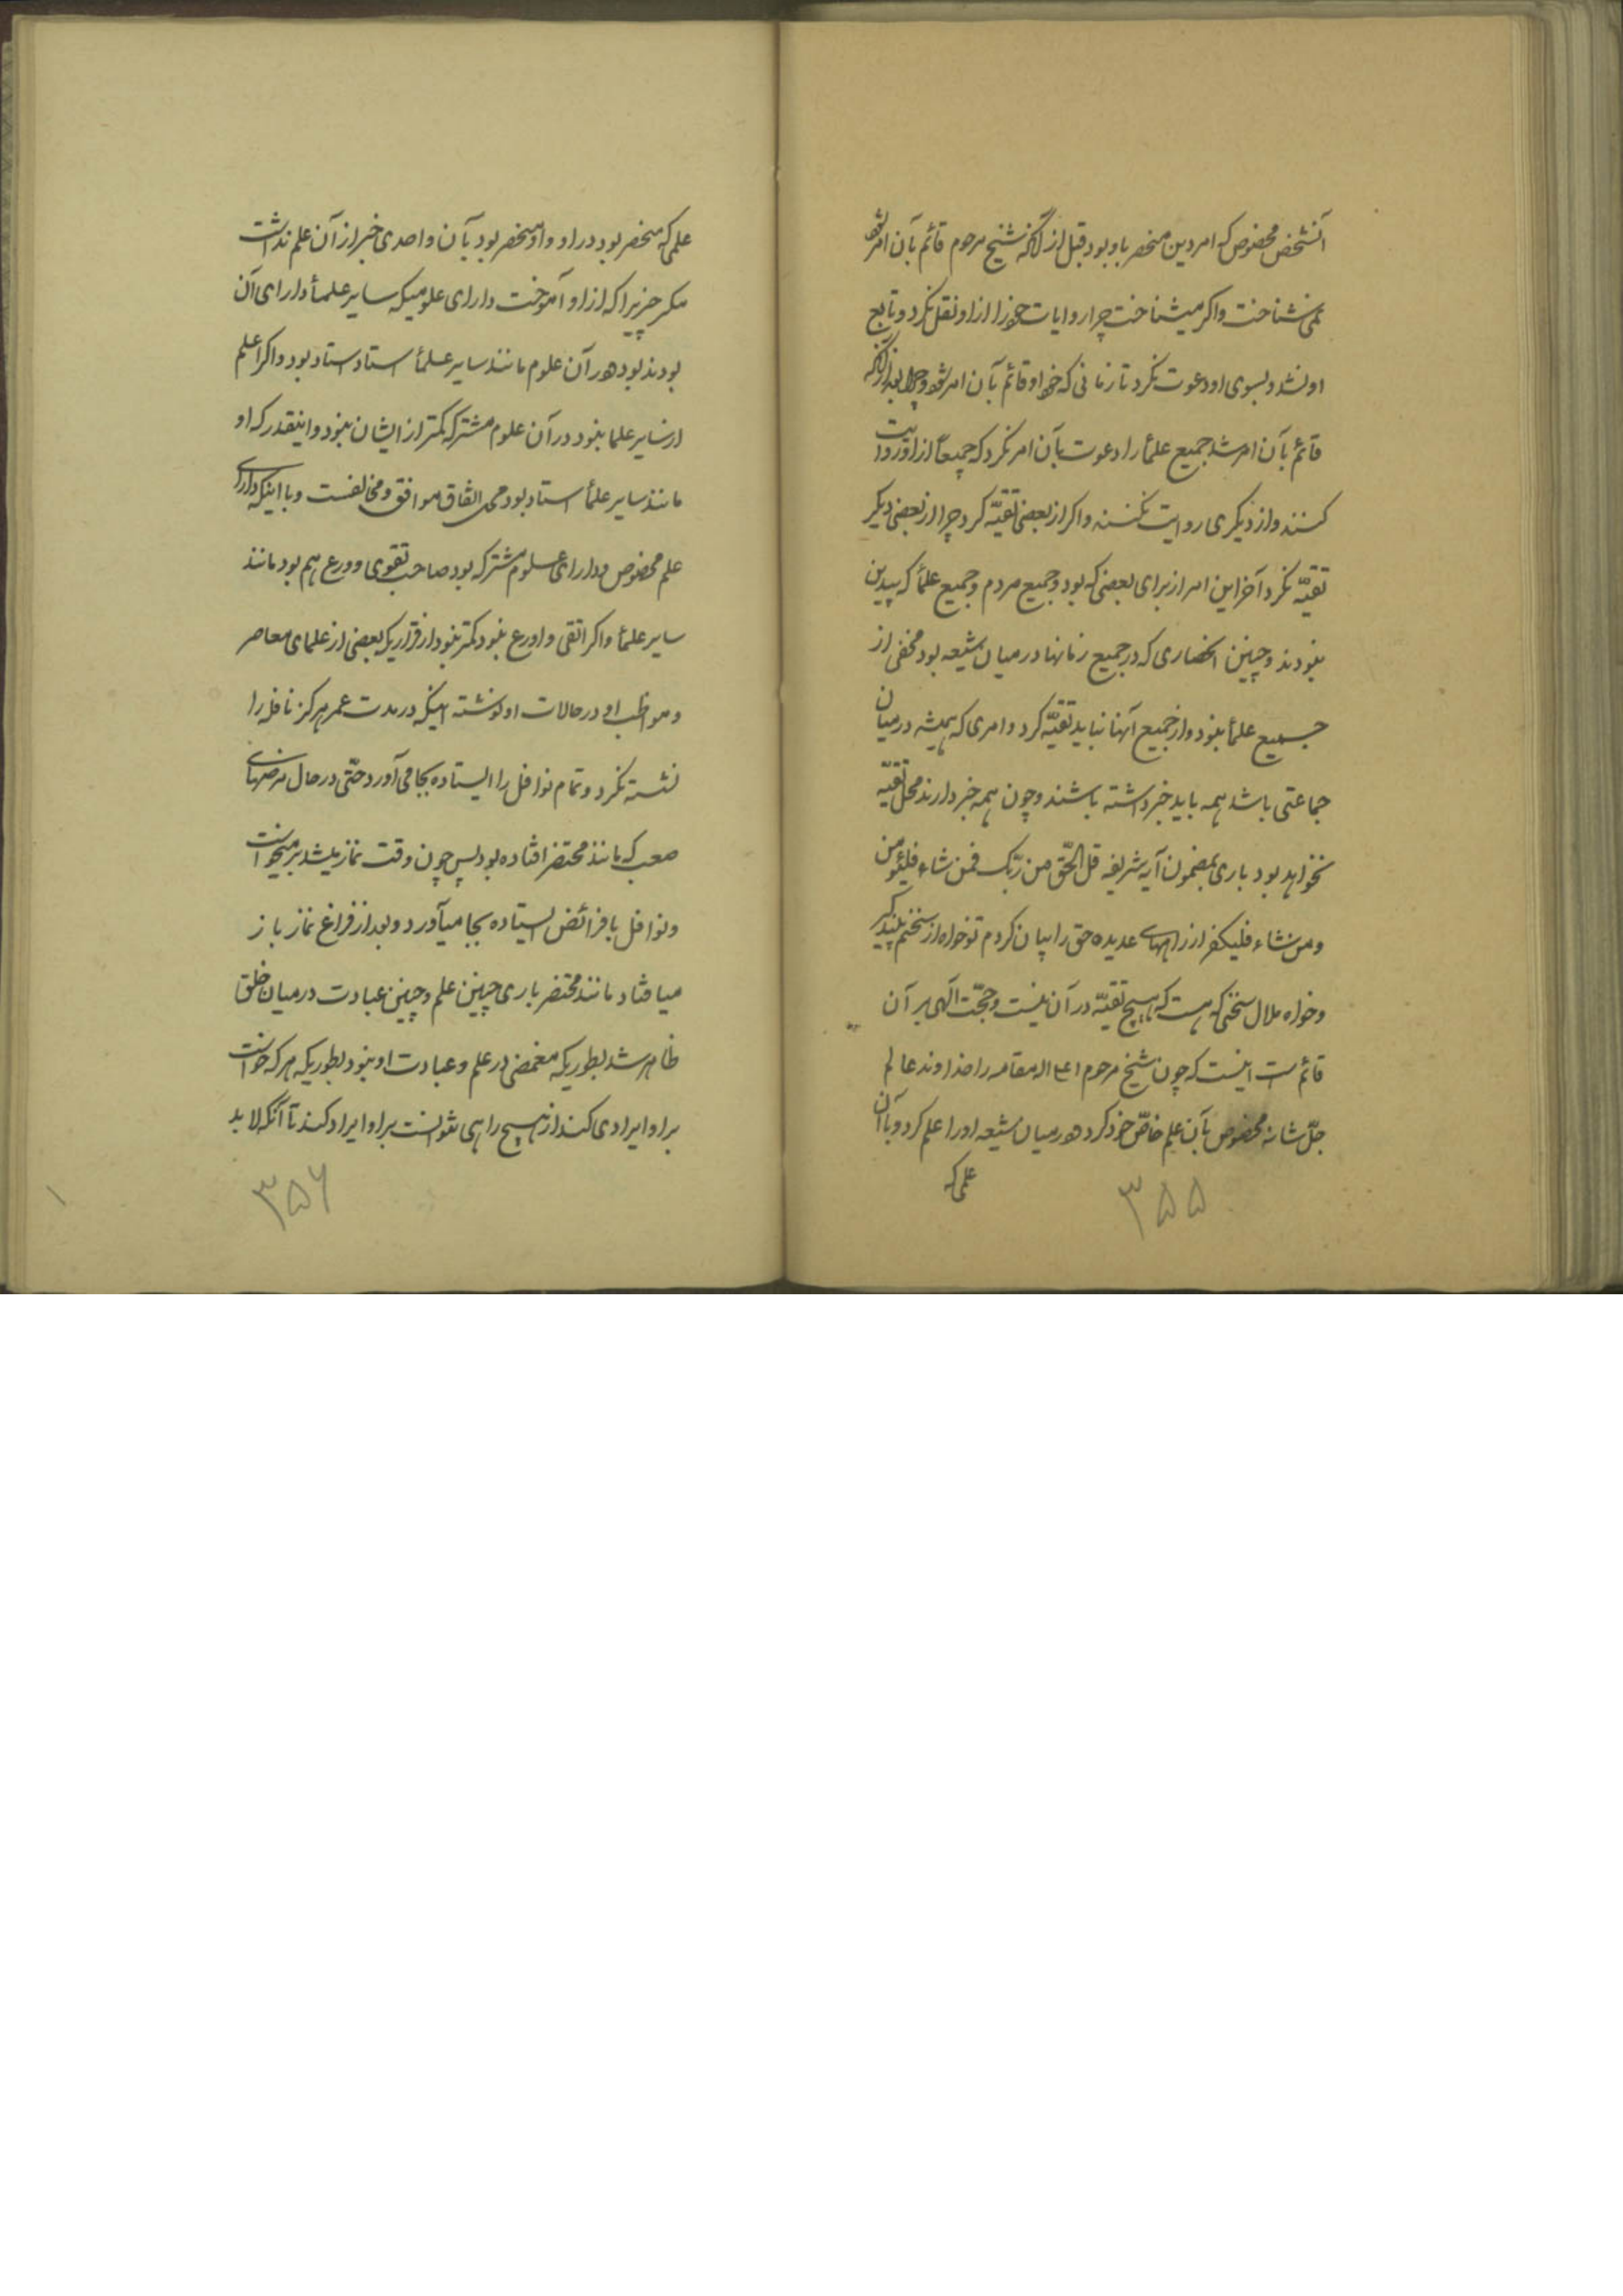 آنشخص مخصوص که امر دین منحصر باو بود قبل از آنکه شیخ مرحوم قائم بآن امر شود
نمی‌شناخت و اکر میشناخت چرا روایات خود را از او نقل نکرد و تابع
او نشد و بسوی او دعوت نکرد تا زمانی که خود او قائم بآن امر شود و چرا بعد از آنکه
قائم بآن امر شد جمیع علمأ را دعوت بآن امر نکرد که جمیعاً از او روایت
کنند و از دیکری روایت نکنند و اکر از بعضی تقیّه کرد چرا از بعضی دیکر
تقیّه نکرد آخر این امر از برای بعضی که بود و جمیع مردم و جمیع علمأ که بیدین
نبودند و چنین انحصاری که در جمیع زمانها در میان شیعه بود مخفی از
جمیع علمأ نبود و از جمیع آنها نباید تقیّه کرد و امری که همیشه در میان
جماعتی باشد همه باید خبر داشته باشند و چون همه خبر دارند محل تقیّه
نخواهد بود باری بمضمون آیه شریفه قل الحقّ من ربّک فمن شاء فلیؤمن
و من شاء فلیکفر از راههای عدیده حق را بیان کردم تو خواه از سخنم پند کیر
و خواه ملال سخنی که هست که هیچ تقیّه در آن نیست و حجّت الهی بر آن
قائم است اینست که چون شیخ مرحوم اعلی الله مقامه را خداوند عالم
جلّ شانه مخصوص بآن علم خاصّ خود کرد و در میان شیعه او را علم کرد و با آن
علمی که
۳۵۵
علمی که منحصر بود در او و او منحصر بود بآن و احدی خبر از آن علم نداشت
مکر چیزیرا که از او آموخت دارای علومیکه سایر علمأ دارای آن
بودند بود و در آن علوم مانند سایر علمأ استاد استاد بود و اکر اعلم
از سایر علما نبود در آن علوم مشترکه کمتر از ایشان نبود و اینقدر که او
مانند سایر علمأ استاد بود محل اتفاق موافق و مخالفست و با اینکه دارای
علم مخصوص و دارای علوم مشترکه بود صاحب تقوی و ورع هم بود مانند
سایر علمأ و اکر اتقی و اورع نبود کمتر نبود از قراریکه بعضی از علمای معاصر
و مواظب او در حالات او نوشته اینکه در مدت عمر هرکز نافله را
نشسته نکرد و تمام نوافل را ایستاده بجا می آورد حتّی در حال مرضهای
صعب که مانند محتضر افتاده بود پس چون وقت نماز میشد بر میخواست
و نوافل با فرائض ایستاده بجا میآورد و بعد از فراغ نماز باز
میافتاد مانند محتضر باری چنین علم و چنین عبادت در میان خلق
ظاهر شد بطوریکه مغمضی در علم و عبادت او نبود بطوریکه هر که خواست
بر او ایرادی کند از هیچ راهی نتوانست بر او ایراد کند تا آنکه لابد
۳۵۶